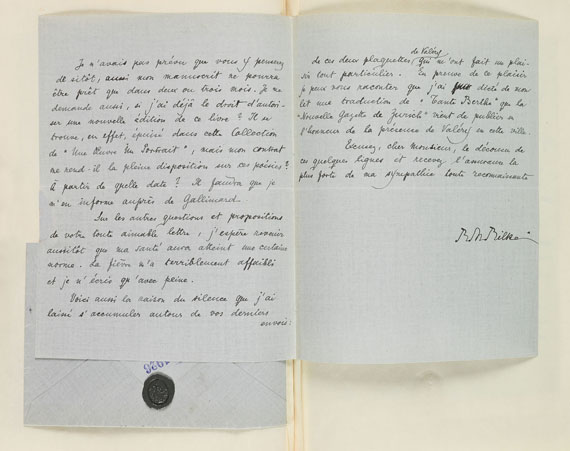 Je n'avais pas prévu que vous y pensez
de sitôt, aussi mon manuscrit ne pourra
être prêt que dans deux ou trois mois. Je me
demande aussi, si j'ai déjà le droit d'autori-
ser une nouvelle édition de ce livre? Il se
trouve, en effet, épuisé dans cette Collection
de "Une Œuvre Un Portrait", mais mon contrat
me rend-il la pleine disposition sur ces poésies?
à partir de quelle date? Il faudra que je
m'en informe auprès de Gallimard.
Sur les autres questions et propositions
de votre toute aimable lettre, j'espère revenir
aussitôt que ma santé aura atteint une certaine
norme. La fièvre m'a terriblement affaibli
et je n'écris qu'avec peine.
Voici aussi la raison du silence que j'ai
laissé s'accumuler autour de vos derniers
envois:
de ces deux plaquettes de Valéry qui m'ont fait un plai-
sir tout particulier. En preuve de ce plaisir
je peux vous raconter que j'ai dicté de mon
lit une traduction de "Tante Berthe" que la
"Nouvelle Gazette de Zurich" vient de publier en
l'honneur de la présence de Valéry en cette ville.
Excusez, cher monsieur, le décousu de
ces quelques lignes et recevez l'assurance la
plus forte de ma sympathie toute reconnaissante
R. M. Rilke